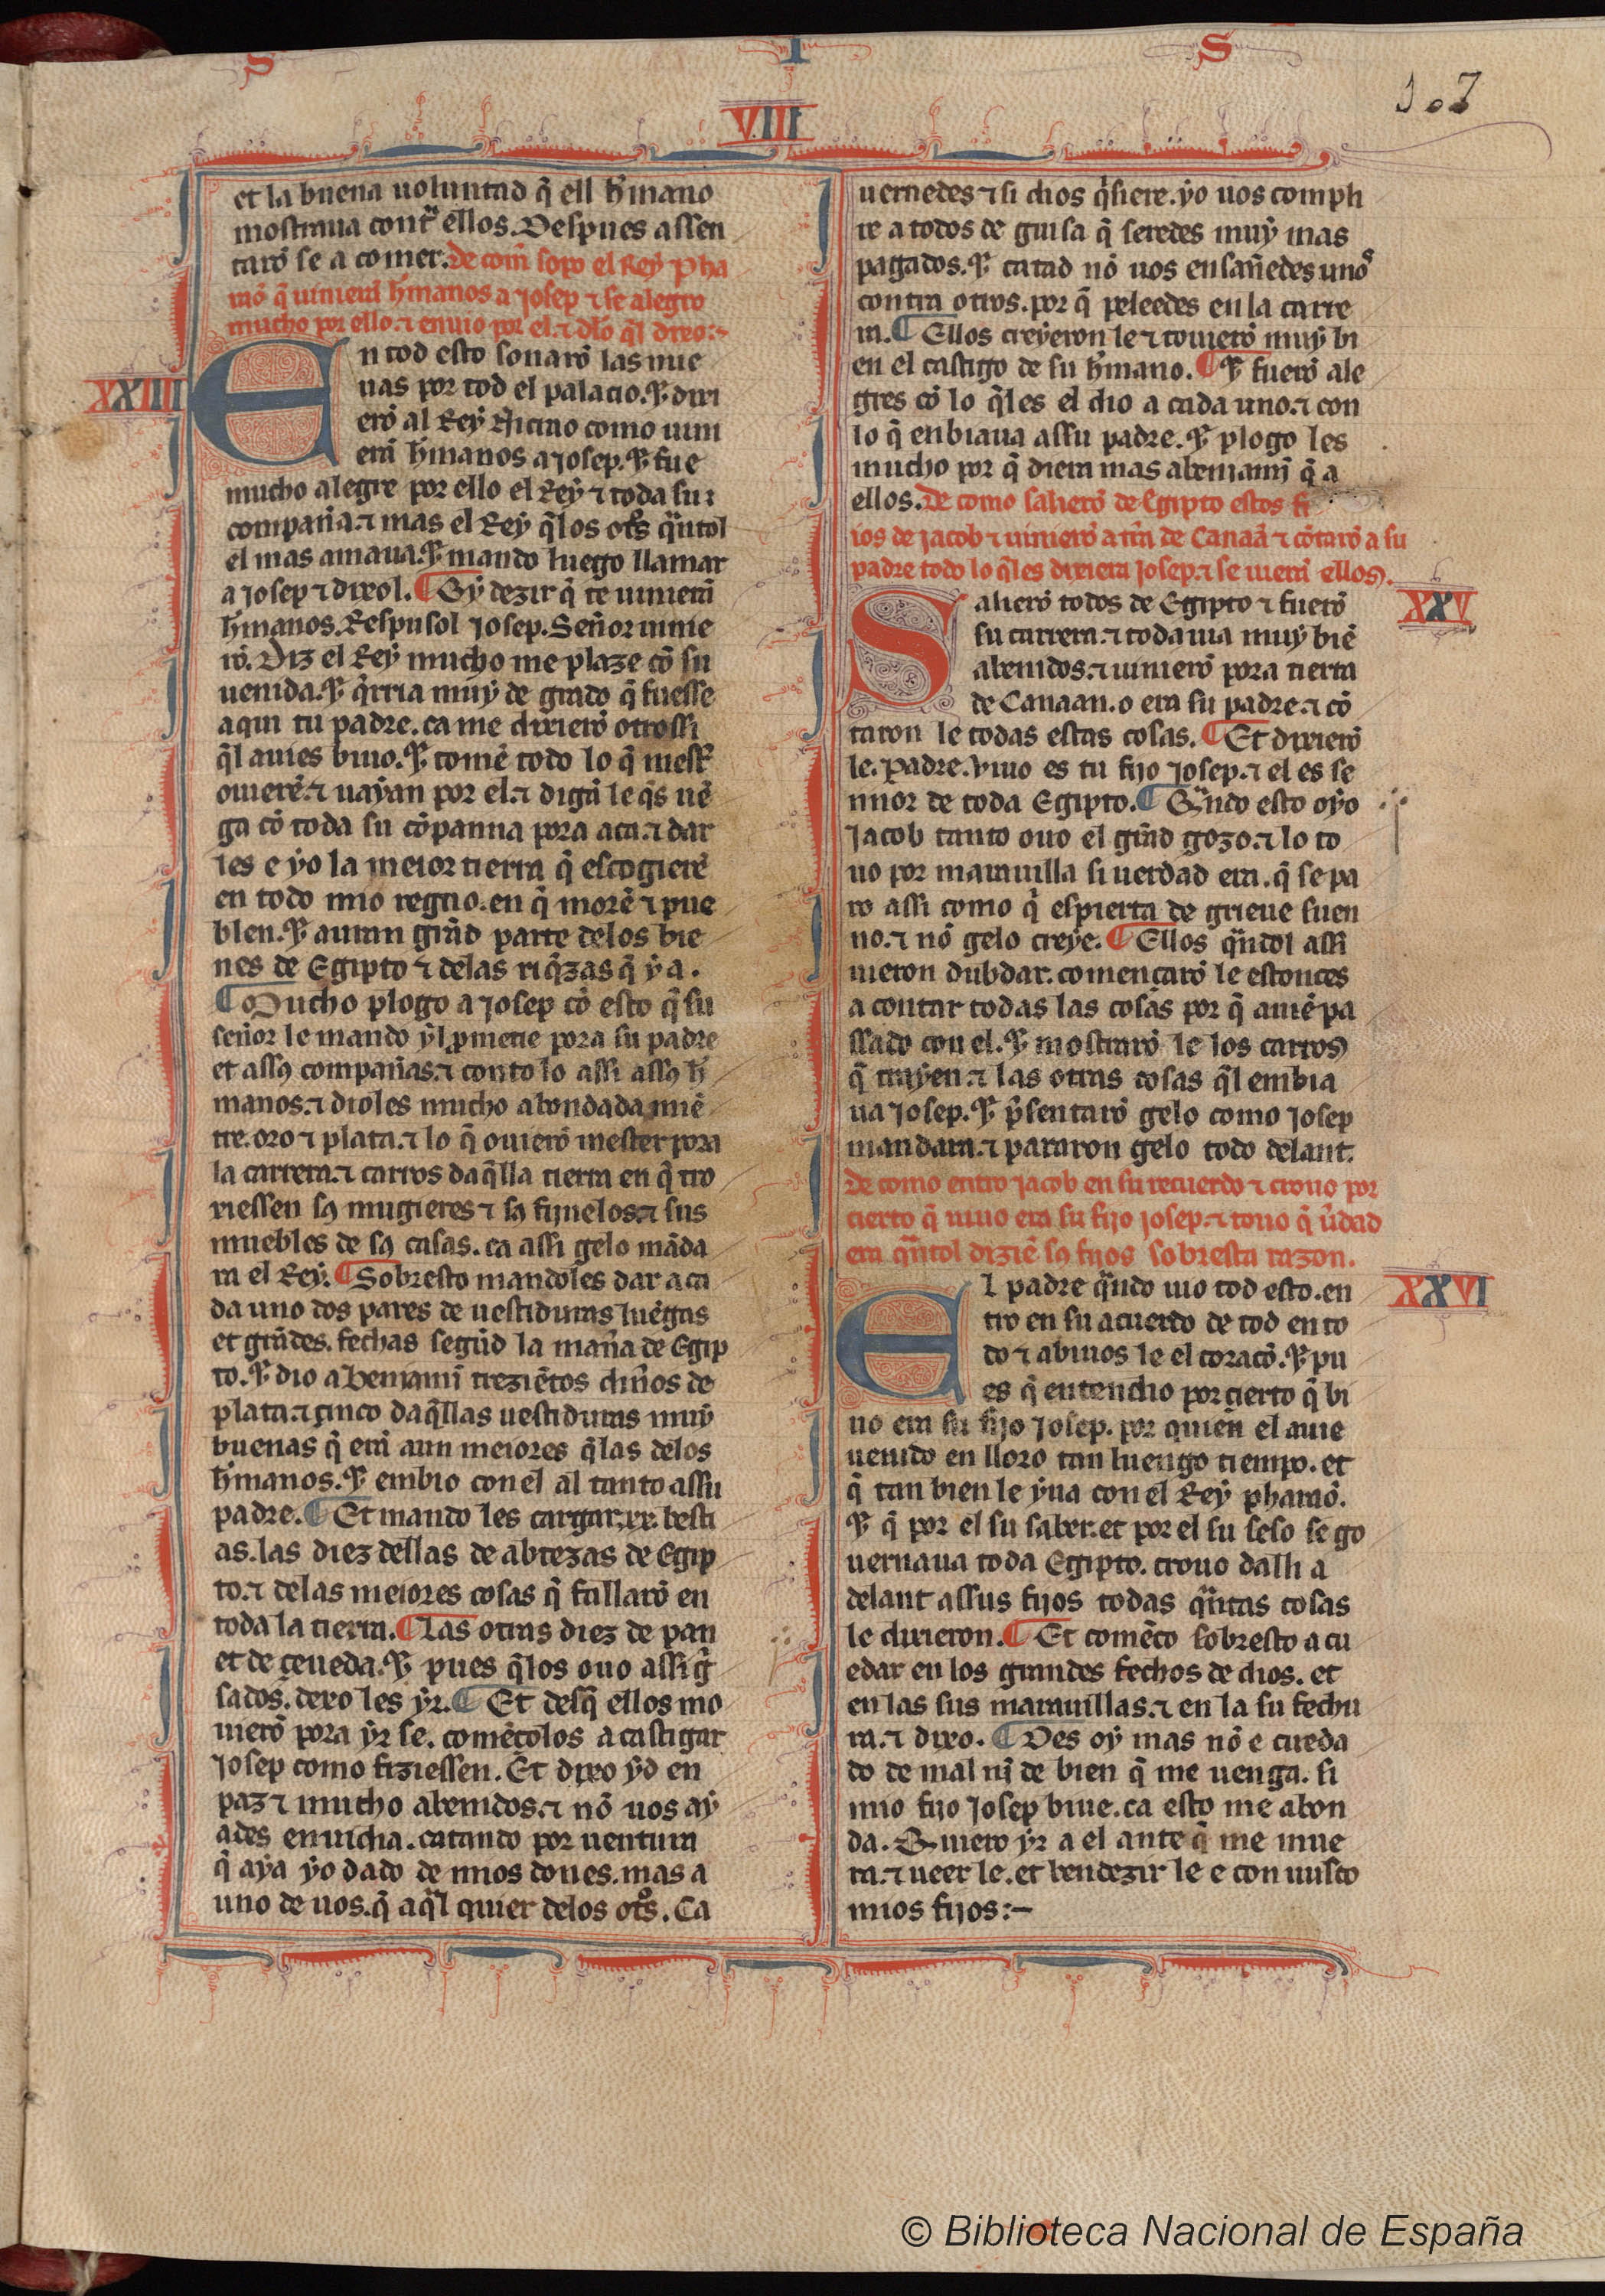 S I S
VIII
107
et la buena uoluntad q̃ ell h̃mano
mostraua contr̃ ellos. Despues assen
tarõ se a comer. De com̃ sopo el Rey Pha
raõ q̃ uinierã h̃manos a Josep ⁊ se alegro
mucho por ello. ⁊ enuio por el. ⁊ dl̃o q̃l dixo:-
XXIIII
En tod esto sonarõ las nue
uas por tod el palacio. ⁊ dixi
erõ al Rey Nicrao como uini
erã h̃manos a Josep. ⁊ fue
mucho alegre por ello el Rey ⁊ toda su
compan̄a. ⁊ mas el Rey q̃ los ot̃s q̃ntol
el mas amaua. ⁊ mando luego llamar
a Josep ⁊ dixol. ¶ Oy dezir q̃ te uinierã
h̃manos. Respusol Josep. Señor uinie
rõ. Diz el Rey mucho me plaze cõ su
uenida. ⁊ q̃rria muy de grado q̃ fuesse
aqui tu padre. ca me dixierõ otrossi
q̃l auies biuo. ⁊ tomẽ todo lo q̃ mest̃
ouierẽ. ⁊ uayan por el. ⁊ digã le q̃s uẽ
ga cõ toda su cõpanna pora aca. ⁊ dar
les e yo la meior tierra q̃ escogierẽ
en todo mio regno. en q̃ morẽ ⁊ pue
blen. ⁊ auran grãd parte delos bie
nes de Egipto ⁊ delas riq̃zas q̃ y a.
¶ Mucho plogo a Josep cõ esto q̃ su
señor le mando yl ꝓmetie pora su padre
et assꝯ compan̄as. ⁊ conto lo assi assꝯ h̃
manos. ⁊ dioles mucho abondada miẽ
tre. oro ⁊ plata. ⁊ lo q̃ ouierõ mester pora
la carrera. ⁊ carros daq̃lla tierra en q̃ tro
xiessen sꝯ mugieres ⁊ sꝯ fijuelos. ⁊ sus
muebles de sꝯ casas. ca assi gelo mãda
ra el Rey. ¶ Sobresto mandoles dar a ca
da uno dos pares de uestiduras luẽgas
et grãdes. fechas segũd la man̄a de Egip
to. ⁊ dio a beniamĩ treziẽtos din̄os de
plata. ⁊ çinco daq̃llas uestiduras muy
buenas q̃ erã aun meiores q̃ las delos
h̃manos. ⁊ embio con el al tanto assu
padre. ¶ Et mando les cargar .xx. besti
as. las diez dellas de abtezas de Egip
to. ⁊ delas meiores cosas q̃ fallarõ en
toda la tierra. ¶ Las otras diez de pan
et de çeueda. ⁊ pues q̃ los ouo assi g̃
sados. dexo les yr. ¶ Et desq̃ ellos mo
uierõ pora yr se. comẽçolos a castigar
Josep como fiziessen. Et dixo yd en
paz ⁊ mucho abenidos. ⁊ nõ uos ay
ades enuidia. catando por uentura
q̃ aya yo dado de mios dones. mas a
uno de uos. q̃ aq̃l quier delos ot̃s. Ca
uernedes ⁊ si dios q̃siere. yo uos compli
re a todos de guisa q̃ seredes muy mas
pagados. ⁊ catad nõ uos ensañedes unoˢ
contra otros. por q̃ peleedes en la carre
ra. ¶ Ellos creyeron le ⁊ touierõ muy bi
en el castigo de su h̃mano. ¶ ⁊ fuerõ ale
gres cõ lo q̃ les el dio a cada uno. ⁊ con
lo q̃ enbiaua assu padre. ⁊ plogo les
mucho por q̃ diera mas abeniamĩ q̃ a
ellos. De como salierõ de Egipto estos fi
ios de Jacob ⁊ uinierõ a tr̃a de Canaã ⁊ cõtarõ a su
padre todo lo q̃ les dixiera Josep. ⁊ se uierã ellos.
XXV
Salierõ todos de Egipto ⁊ fuerõ
su carrera. ⁊ toda uia muy biẽ
abenidos. ⁊ uinierõ pora tierra
de Canaan. o era su padre. ⁊ cõ
taron le todas estas cosas. ¶ Et dixierõ
le. Padre. viuo es tu fijo Josep. ⁊ el es se
nnor de toda Egipto. ¶ Q̃ndo esto oyo
Jacob tanto ouo el grãd gozo. ⁊ lo to
uo por marauilla si uerdad era. q̃ se pa
ro assi como q̃ espierta de grieue suen
no. ⁊ nõ gelo creye. ¶ Ellos q̃ndol assi
uieron dubdar. començarõ le estonces
a contar todas las cosas por q̃ auiẽ pa
ssado con el. ⁊ mostrarõ le los carros
q̃ trayen. ⁊ las otras cosas q̃l embia
ua Josep. ⁊ p̃sentarõ gelo como Josep
mandara. ⁊ pararon gelo todo delant.
De como entro Jacob en su recuerdo ⁊ crouo por
cierto q̃ uiuo era su fijo Josep. ⁊ touo q̃ ũdad
era q̃ntol diziẽ sꝯ fijos sobresta razon.
XXVI
El padre q̃ndo uio tod esto. en
tro en su acuerdo de tod en to
do ⁊ abiuos le el coraçõ. ⁊ pu
es q̃ entendio por cierto q̃ bi
uo era su fijo Josep. por quien el auie
uenido en lloro tan luengo tiempo. et
q̃ tan bien le yua con el Rey pharaõ.
⁊ q̃ por el su saber. et por el su seso se go
uernaua toda Egipto. crouo dalli a
delant assus fijos todas q̃ntas cosas
le dixieron. ¶ Et comẽço sobresto a cu
edar en los grandes fechos de dios. et
en las sus marauillas. ⁊ en la su fechu
ra. ⁊ dixo. ¶ Des oy mas nõ e cueda
do de mal nĩ de bien q̃ me uenga. si
mio fijo Josep biue. ca esto me abon
da. Quiero yr a el ante q̃ me mue
ra. ⁊ ueer le. et bendezir le e con uusco
mios fijos:-
© Biblioteca Nacional de España